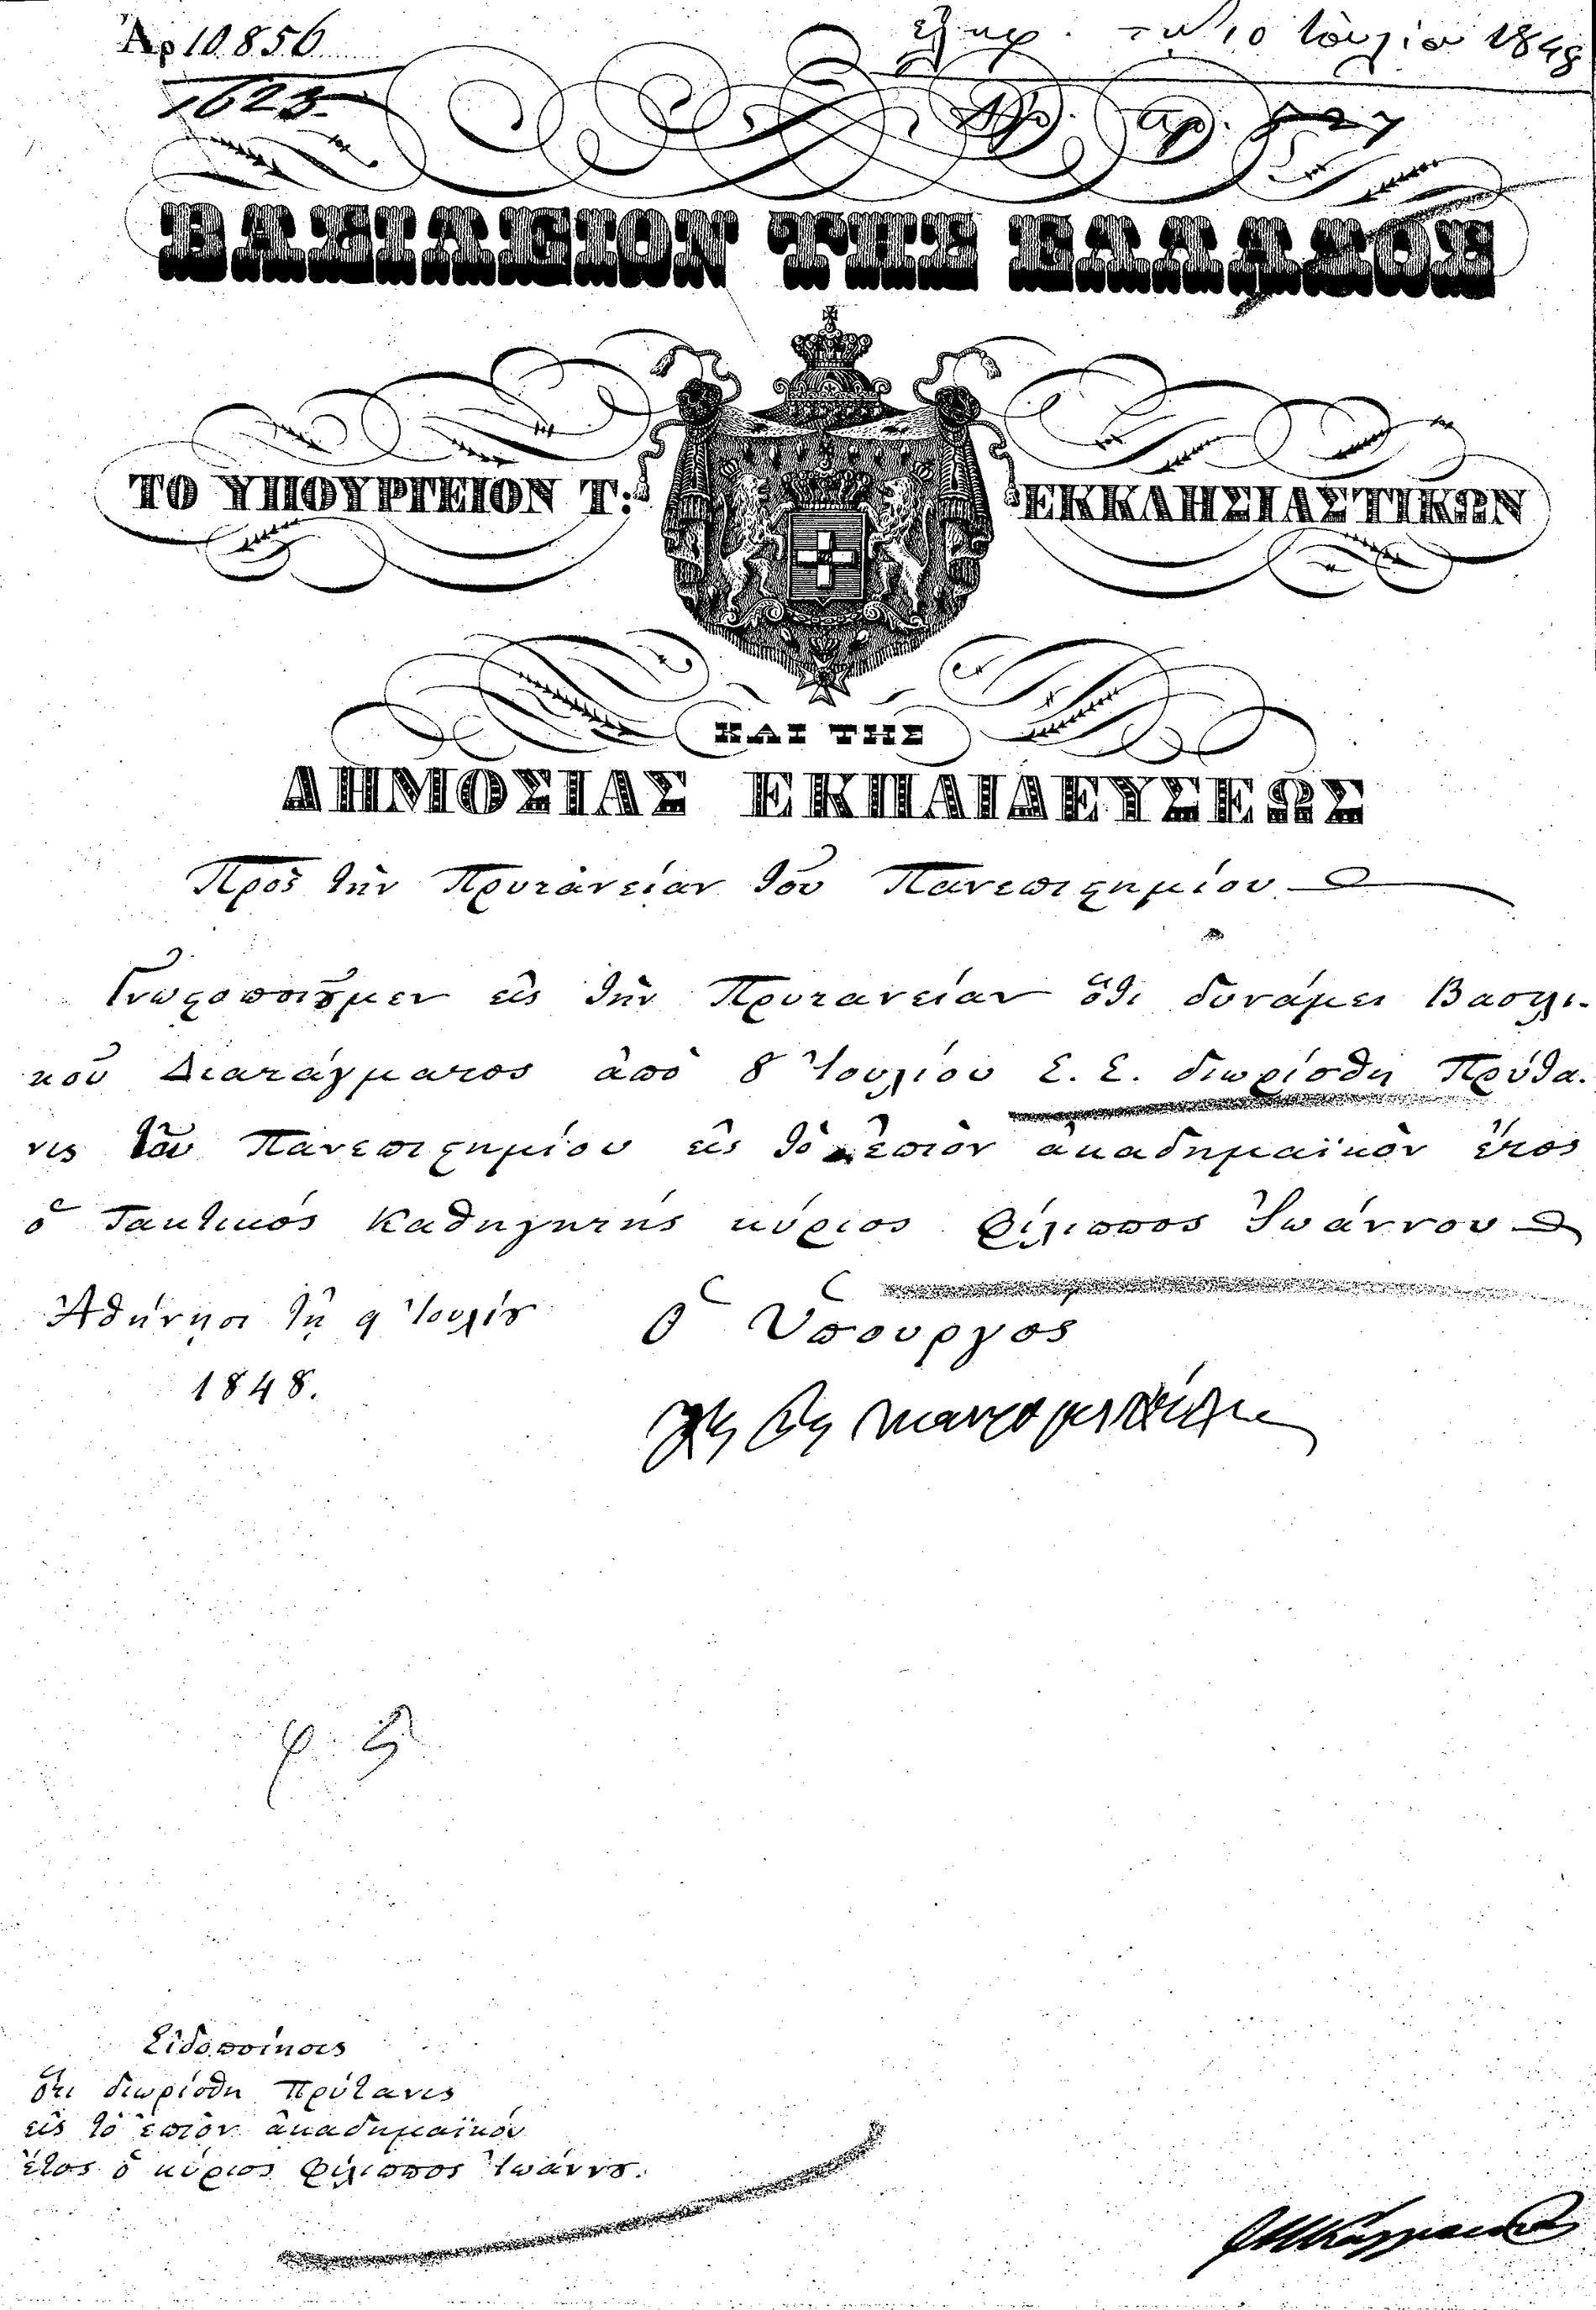 Ἀρ 10.856
1623.
ἐλήφ. τῇ 10 Ἰουλίου 1848
Πρ. ἀρ. 527
ΒΑΣΙΛΕΙΟΝ ΤΗΣ ΕΛΛΑΔΟΣ
ΤΟ ΥΠΟΥΡΓΕΙΟΝ Τ: ΕΚΚΛΗΣΙΑΣΤΙΚΩΝ
ΚΑΙ ΤΗΣ
ΔΗΜΟΣΙΑΣ ΕΚΠΑΙΔΕΥΣΕΩΣ
Πρὸς τὴν Πρυτανείαν τοῦ Πανεπιστημίου
Γνωστοποιοῦμεν εἰς τὴν Πρυτανείαν ὅτι δυνάμει Βασιλι-
κοῦ Διατάγματος ἀπὸ 8 Ἰουλίου Ε. Ε. διωρίσθη Πρύτα-
νις τοῦ Πανεπιστημίου εἰς τὸ ἐπιὸν ἀκαδημαϊκὸν ἔτος
ὁ Τακτικός Καθηγητής κύριος Φίλιππος Ἰωάννου
Ἀθήνησι τῇ 9 Ἰουλίου
1848.
Ὁ Ὑπουργός
Εἰδοποίησις
ὅτι διωρίσθη Πρύτανις
εἰς τὸ ἐπιὸν ἀκαδημαϊκόν
ἔτος ὁ κύριος Φίλιππος Ἰωάννου.